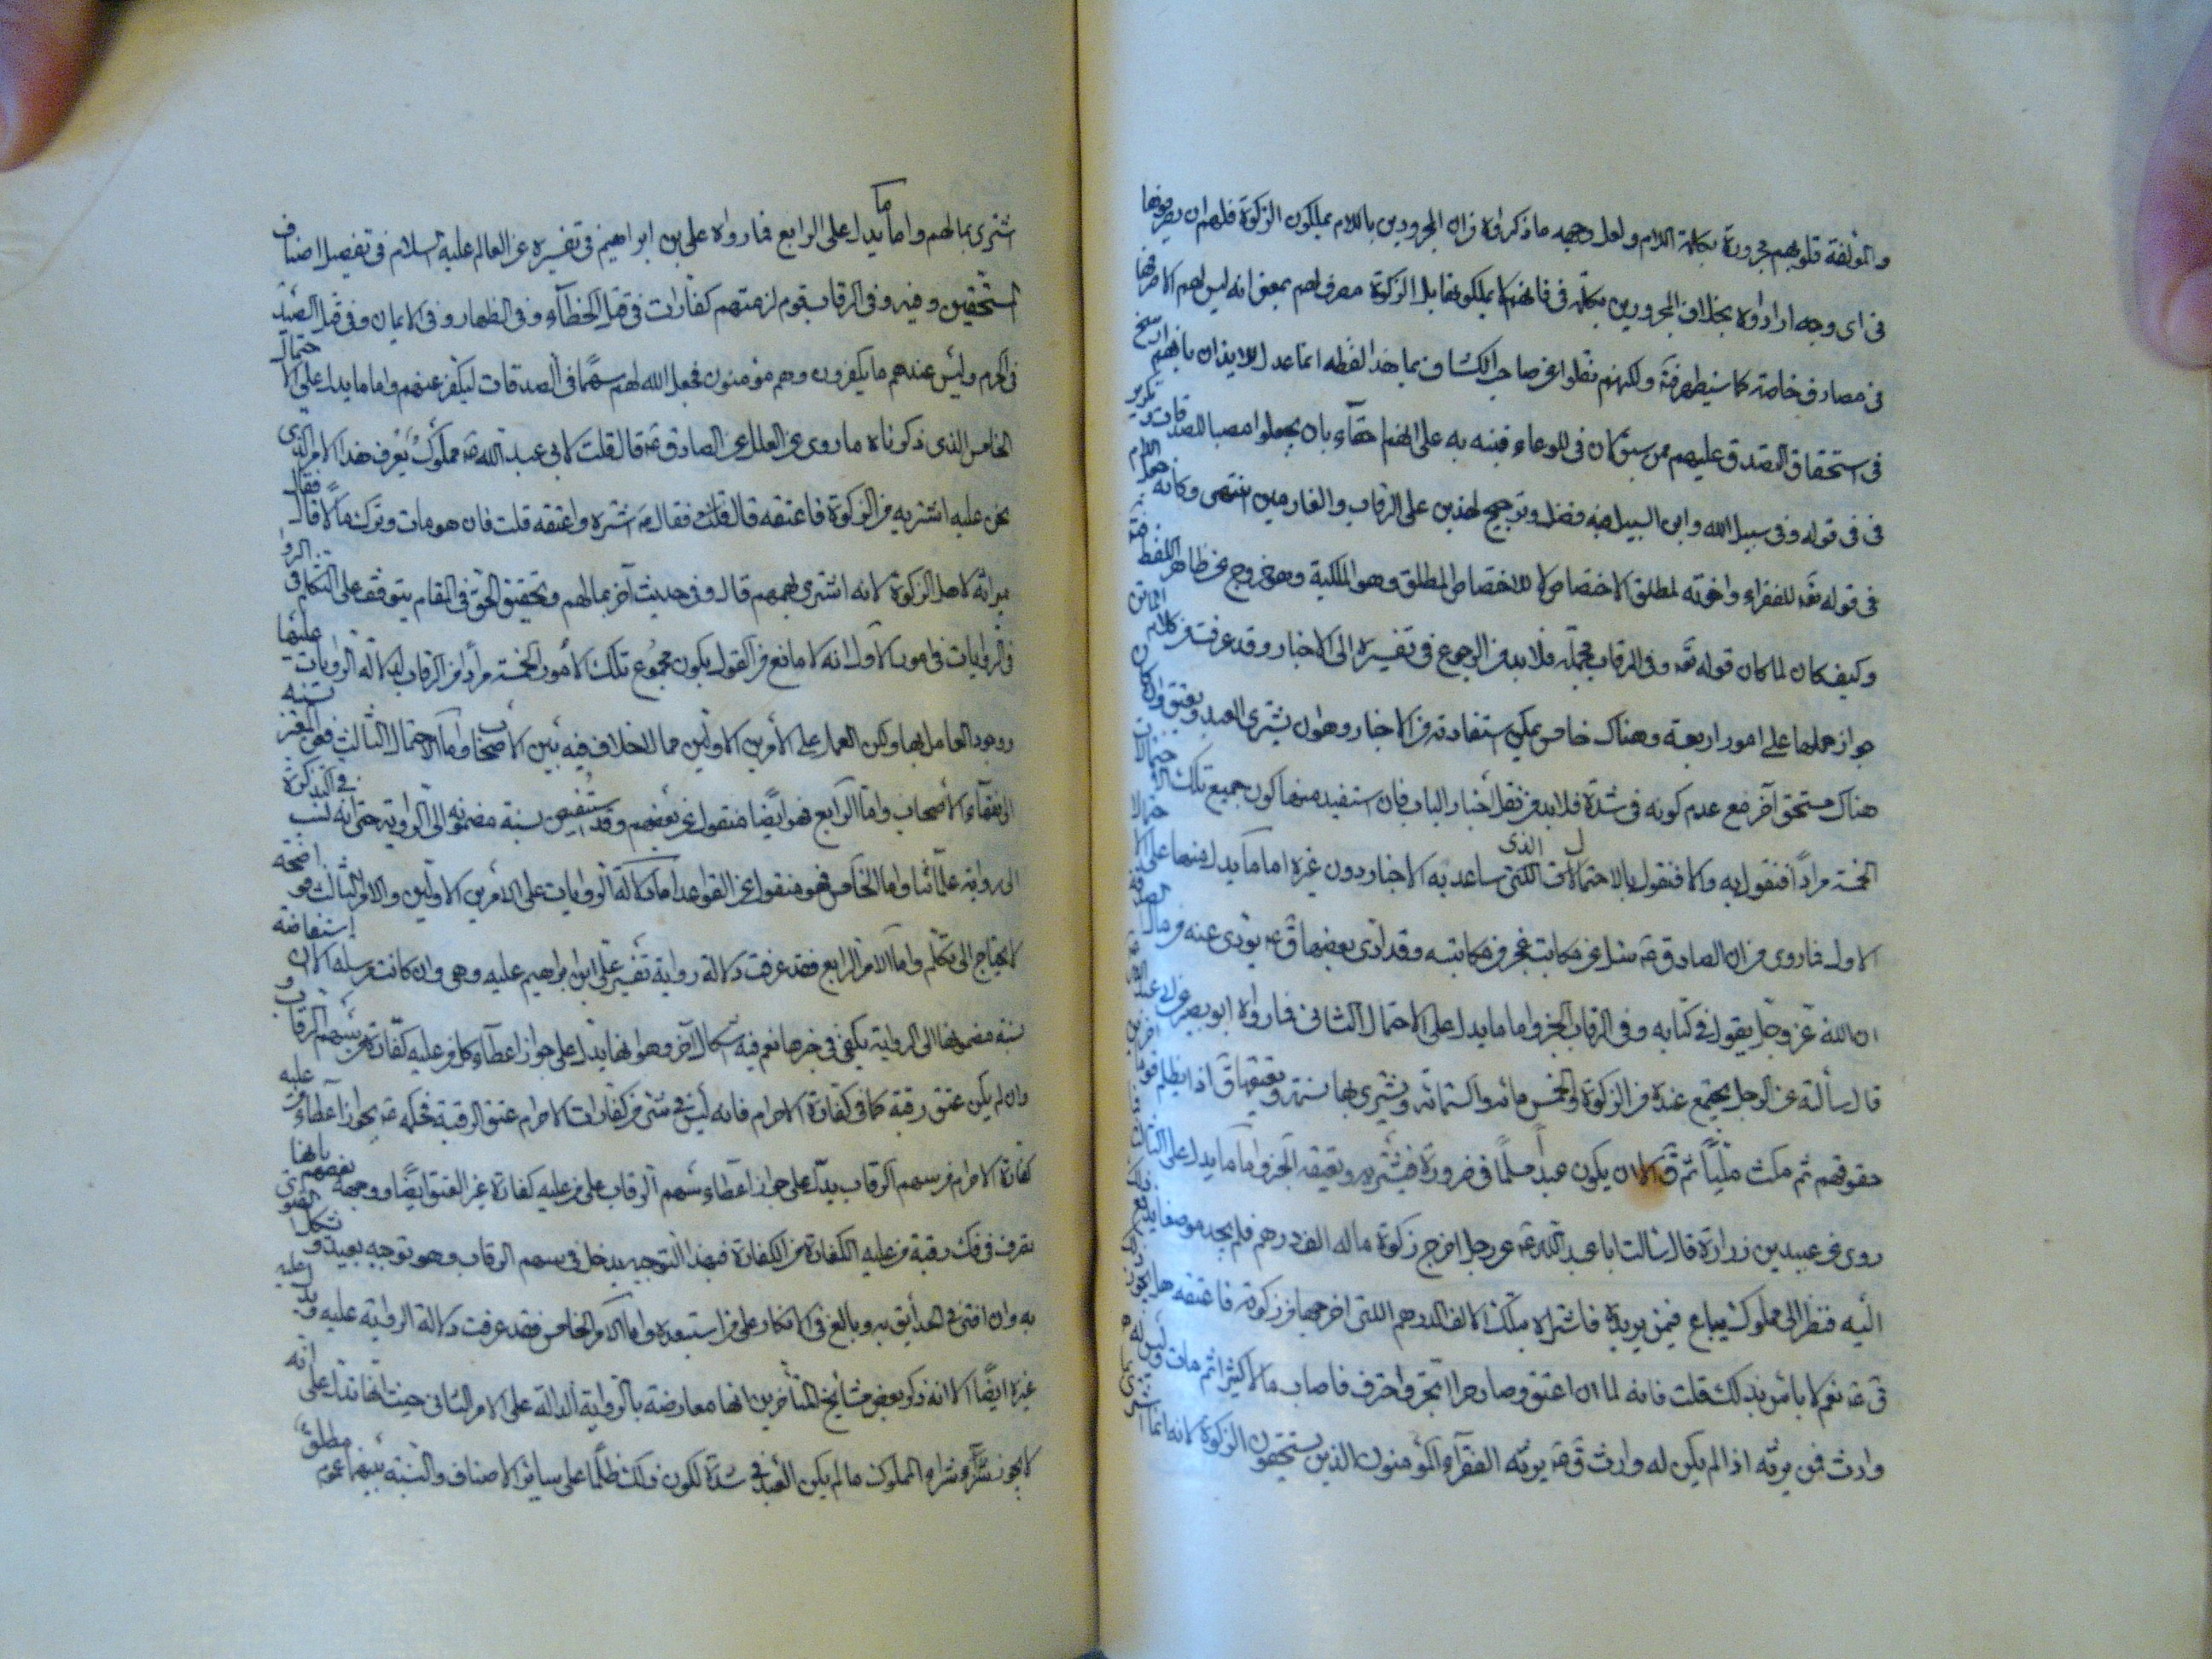 والمؤلفة قلوبهم مجرورة بكلمة اللام ولعل وجهه ما ذكراوه من ان المجرورين باللام يملكون الزكوة فلهم ان يصرفوها
فى اى وجه ارادوه بخلاف المجرورين بكلمة فى فانهم لا يملكونها بل الزكوة مصرف لهم بمعنى انه ليس لهم الا صرفها
فى مصارف خاصة كما سيظهر منه ولكنهم نقلوا عن صاحب الكشاف بما هذا لفظه انما عدل للايذان بانهم ارسخ
فى استحقاق التصدق عليهم ممن سبق لان فى للوعاء فنبه به على انهم احقآء بان يجعلوا مصبا للصدقات وتكرير
فى فى قوله وفى سبيل الله وابن السبيل فيه فضل وترجيح لهذين على الرقاب والغارمين انتهى وكانه حمل اللام
فى قوله تع للفقراء واخوته لمطلق الاختصاص لا للاختصاص المطلق وهو الملكية وهو خروج عن ظاهر اللفظ
وكيف كان لما كان قوله تع وفى الرقاب مجملة فلا بد من الرجوع فى تفسيره الى الاخبار وقد عرفت من كلام الماتن
جواز حملها على امور اربعة وهناك خامس يمكن استفادته من الاخبار وهو ان يشترى العبد ويعتق وان لم يكن
هناك مستحق آخر مع عدم كونه فى شدة فلا بد من نقل اخبار الباب فان استفيد منها كون جميع تلك الاحتمالات
الخمسة مراداً فنقول به والا فنقول بالاحتمال الذى ساعد به الاخبار دون غيره اما ما يدل منها على الاحتمال
الاول فما روى من ان الصادق ع سئل عن مكاتب عجز من مكاتبته وقد ادى بعضها ق ع يؤدى عنه من مال الصدقة
ان الله عز وجل يقول فى كتابه وفى الرقاب الخبر واما ما يدل على الاحتمال الثانى فما رواه ابو بصير عن ابى عبد الله
قال سألته عن الرجل يجتمع عنده من الزكوة الخمس مائة والستمائة ويشترى بها نسمة ويعتقها ق اذا يظلم قوما اخرين
حقوقهم ثم مكث مليّاً ثم ق الا ان يكون عبداً مسلماً فى ضرورة فيشتريه ويعتقه الخبر واما ما يدل على الثالث
روى عن عبيد بن زرارة قال سالت ابا عبد الله ع عن رجل اخرج زكوة ماله الف درهم فلم يجد موضعا يدفع ذلك
اليه فنظر الى مملوك يباع فيمن يريده فاشتراه بتلك الالف الدرهم اللتى اخرجها من زكوته فاعتقه هل يجوز
ق ع نعم لا باس بذلك قلت فانه لما ان اعتق وصار حرا اتجر واحترف فاصاب مالا كثيرا ثم مات وليس له
وارث فمن يرثه اذا لم يكن له وارث ق ع يرثه الفقرآء المؤمنون الذين يستحقون الزكوة لانه انما اشترى
اشترى بمالهم واما ما يدل على الرابع فما رواه على بن ابراهيم فى تفسيره عن العالم عليه السلام فى تفصيل اصناف
المستحقين وفيه وفى الرقاب قوم لزمتهم كفارات فى قتل الخطآء وفى الظهار وفى الايمان وفى قتل الصيد
فى الحرم وليس عندهم ما يكفرون وهم مؤمنون فجعل الله لهم سهمًا فى الصدقات ليكفر عنهم واما ما يدل على الاحتمال
الخامس الذى ذكرناه ما روى عن العلل عن الصادق ع قال قلت لابى عبد الله ع مملوك يعرف هذا الامر الذى
نحن عليه اشتريه من الزكوة فاعتقه قال فقال ع اشتره واعتقه قلت فان هو مات وترك مالا قال فقال
ميراثه لاهل الزكوة لانه اشترى بسهمهم قال وفى حديث آخر بمالهم وتحقيق الحق فى المقام يتوقف على التكلم فى
فى الروايات فى امور الاول انه لا مانع من القول بكون مجموع تلك الامور الخمسة مراداً من الرقاب لدلالة الروايات عليها
ووجود العامل بها ولكن العمل على الامرين الاولين مما لا خلاف فيه بين الاصحاب واما الاحتمال الثالث فعن المعتبر نسبته
الى فقهآء الاصحاب واما الرابع فهو ايضًا منقول عن بعضهم وقد استفيض نسبة مضمونه الى الرواية حتى انه نسب فى التذكرة
الى رواية علمائنا واما الخامس فهو منقول عن القواعد اما دلالة الروايات على الامرين الاولين والامر الثالث فواضحة
لا يحتاج الى تكلم واما الامر الرابع فقد عرفت دلالة رواية تفسير على ابن ابراهيم عليه وهى وان كانت مرسلة الا ان استفاضة
نسبة مضمونها الى الرواية يكفى فى جبرها نعم فيه اشكال آخر وهو انها يدل على جواز اعطآء كل من عليه كفارة من سهم الرقاب و
وان لم يكن عتق رقبة كما فى كفارة الاحرام فانه ليس فى شئ من كفارات الاحرام عتق الرقبة فحكمه ع بجواز اعطآء من عليه
كفارة الاحرام من سهم الرقاب يدل على جواز اعطاء سهم الرقاب على من عليه كفارة غير العتق ايضًا ووجهه بعضهم بانها
تصرف فى فك رقبة من عليه الكفارة من الكفارة فبهذا التوجيه يدخل فى سهم الرقاب وهو توجيه بعيد
به وان افتى فى الحدايق به وبالغ فى الانكار على من استبعده واما الامر الخامس فقد عرفت دلالة الرواية عليه
غيره ايضًا الا انه ذكر بعض مشايخ المتأخرين انها معارضة بالرواية الدالة على الامر الثانى حيث انها تدل على انه
لا يجوز شراء المملوك ما لم يكن العبد فى شدة لكون ذلك ظلمًا على سائر الاصناف والنسبة بينهما عموم مطلق